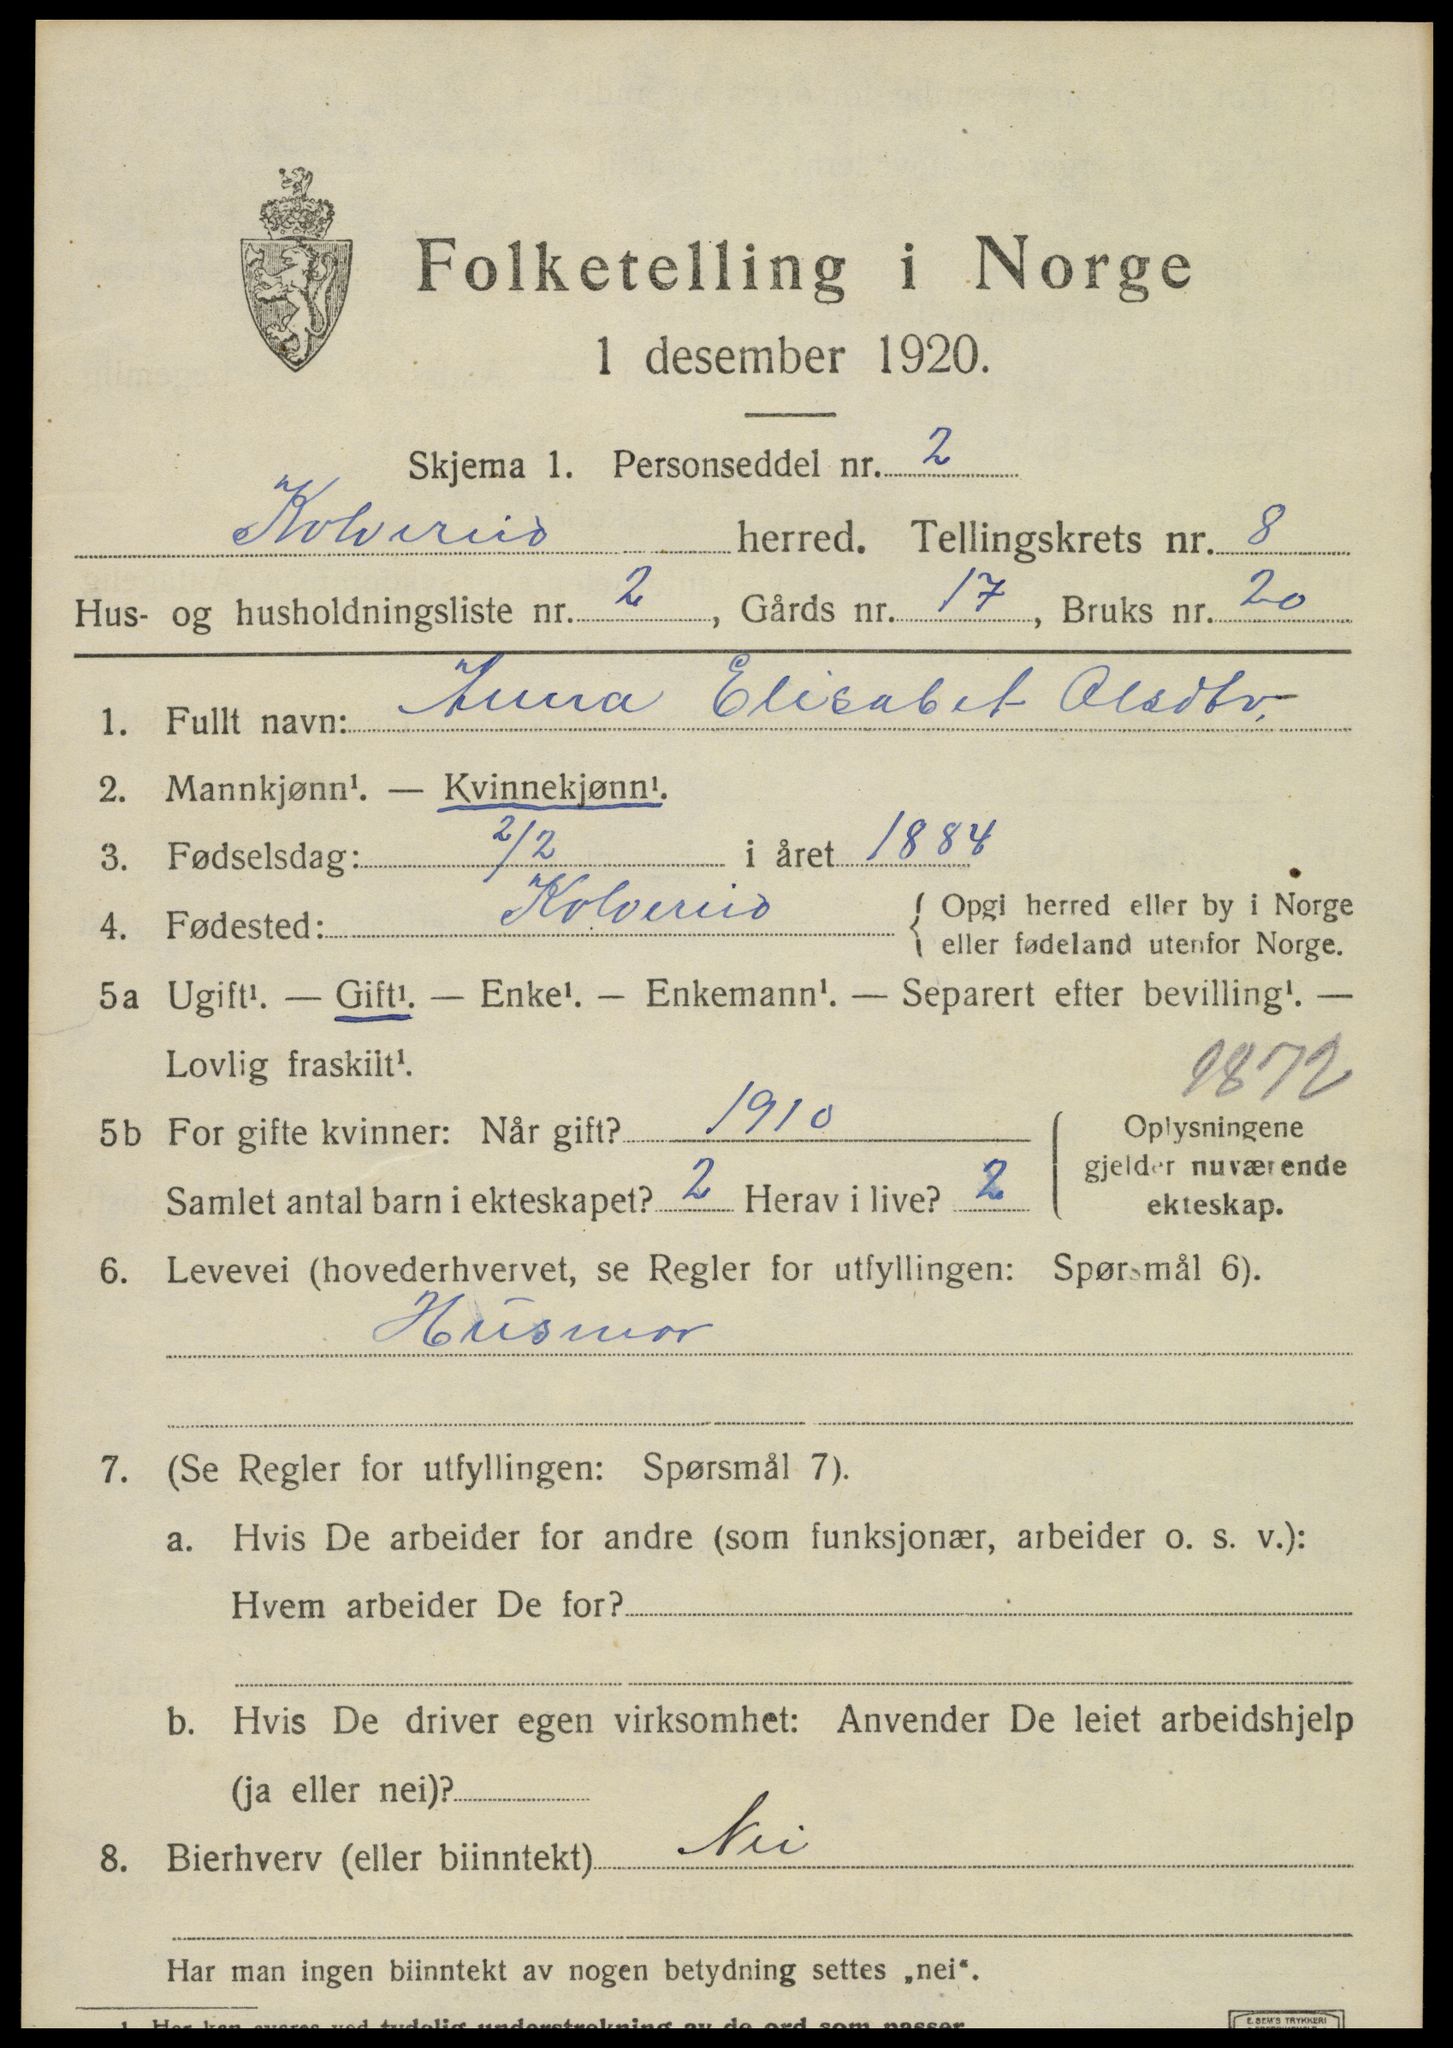 Folketelling i Norge
1 desember 1920.
Skjema 1. Personseddel nr. 2
Kolvereid herred. Tellingskrets nr. 8
Hus- og husholdningsliste nr. 2, Gårds nr. 17, Bruks nr. 20
1. Fullt navn: Anna Elisabet Olsdtr.
2. Mannkjønn¹. — Kvinnekjønn¹.
3. Fødselsdag: 2/2 i året 1884
4. Fødested: Kolvereid { Opgi herred eller by i Norge
eller fødeland utenfor Norge.
5a Ugift¹. — Gift¹. — Enke¹. — Enkemann¹. — Separert efter bevilling¹. —
Lovlig fraskilt¹.
1872
5b For gifte kvinner: Når gift? 1910
Samlet antal barn i ekteskapet? 2 Herav i live? 2
Oplysningene
gjelder nuværende
ekteskap.
6. Levevei (hovederhvervet, se Regler for utfyllingen: Spørsmål 6).
Husmor
7. (Se Regler for utfyllingen: Spørsmål 7).
a. Hvis De arbeider for andre (som funksjonær, arbeider o. s. v.):
Hvem arbeider De for?
b. Hvis De driver egen virksomhet: Anvender De leiet arbeidshjelp
(ja eller nei)?
8. Bierhverv (eller biinntekt) Nei
Har man ingen biinntekt av nogen betydning settes „nei“.
1 Her kan svares ved tydelig understrekning av de ord som passer.
E. SEM'S TRYKKERI